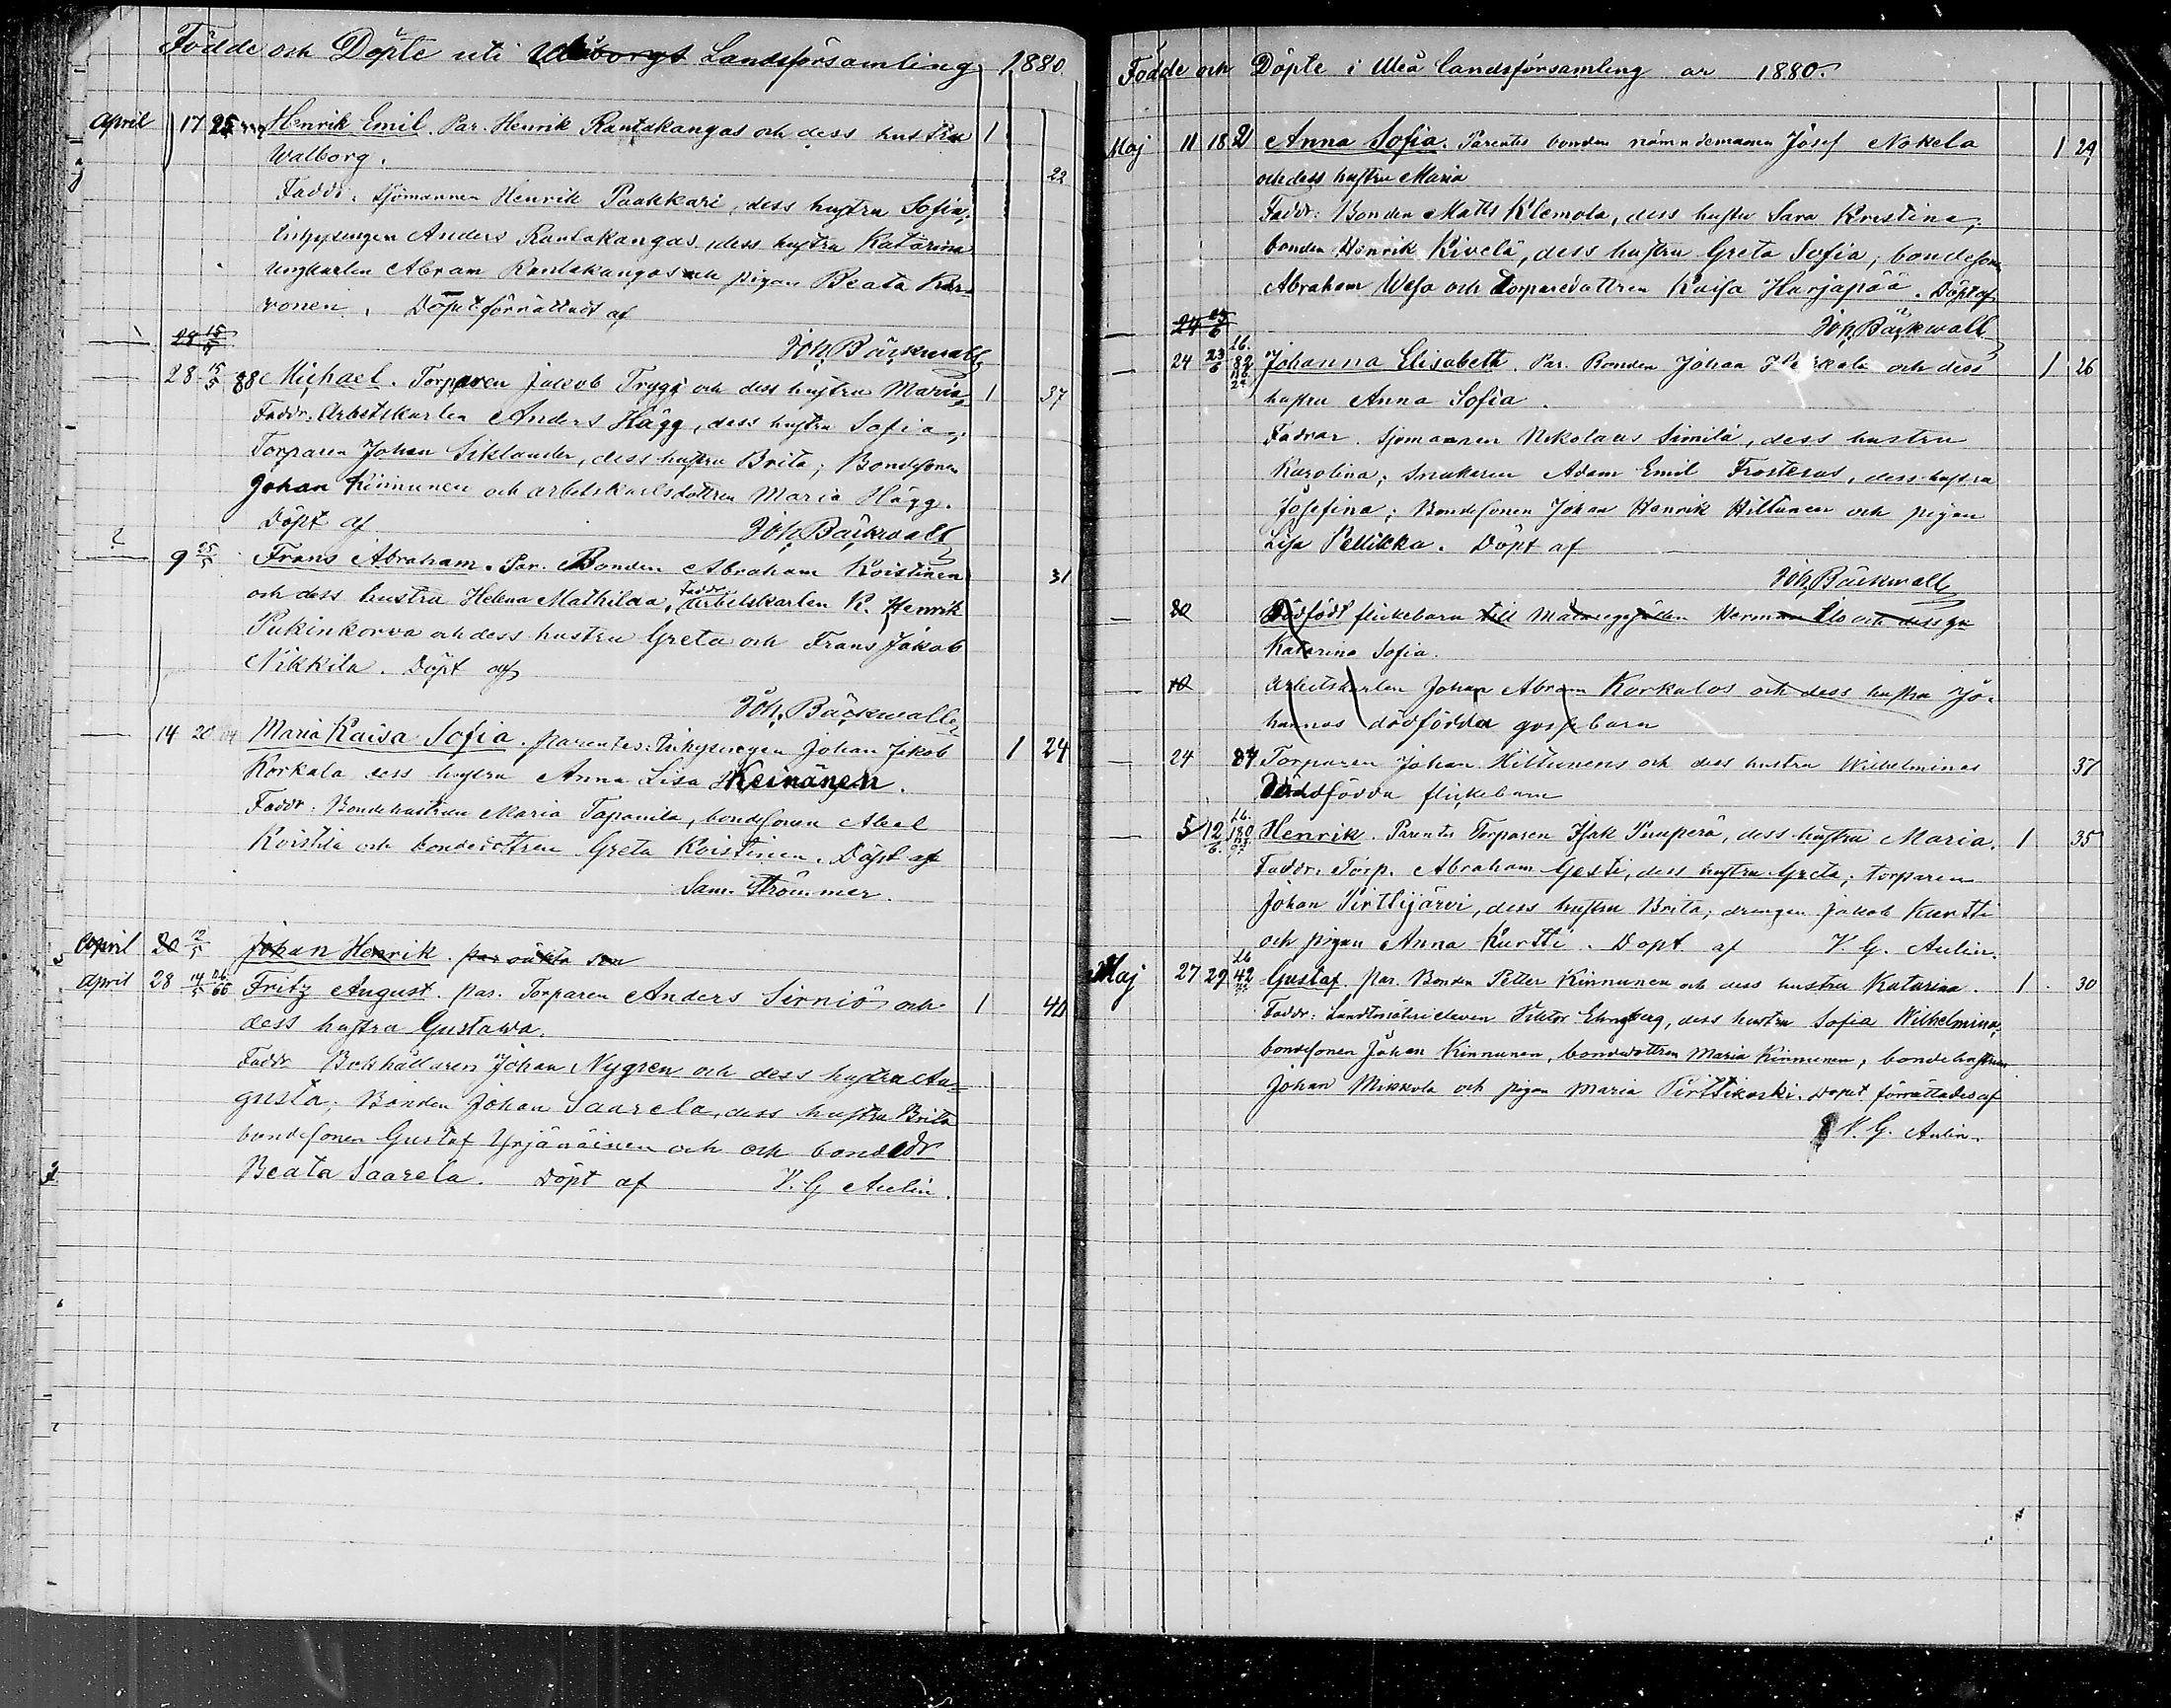 Födde och Döpte uti Uleåborgs Landsförsamling 1880
April 17 25 Henrik Emil. Par. Henrik Rantakangas och dess hustru 1
Walborg. 22
Faddr. Sjömannen Henrik Paakkari, dess hustru Sofia,
Inhysingen Anders Rantakangas, dess hustru Katarina
ungkarlen Abram Rantakangas och pigan Beata Kar-
vonen. Döpt förrättadt af
28 15/5 Joh. Bäckwall
28 15/5 88 Michael. Torparen Jacob Trygg och dess hustru Maria 1 37
Faddr. Arbetskarlen Anders Hägg, dess hustru Sofia,
Torparen Johan Siklander, dess hustru Brita; Bondesonen
Johan Kinnunen och arbetskarlsdottren Maria Hägg.
Döpt af Joh. Bäckwall
9 25/5 Frans Abraham. Par. Bonden Abraham Koistinen 31
och dess hustru Helena Mathilda. Faddr. Arbetskarlen K. Henrik
Pukinkorva och dess hustru Greta och Frans Jakob
Nikkila. Döpt af
Joh. Bäckwall
14 20 Maria Kaisa Sofia. Parentes: Inhysingen Johan Jakob 1 24
Korkala dess hustru Anna Lisa Keinänen.
Faddr: Bondehustrun Maria Tapanila, bondesonen Abel
Koistila och bondedottren Greta Koistinen. Döpt af
Sam. Strömmer.
April 20 12/5 Johan Henrik. par oäkta son
April 28 14/5 26/66 Fritz August. par. Torparen Anders Sirniö och 1 40
dess hustru Gustava.
Faddr Bokhållaren Johan Nygren och dess hustru Au-
gusta; Bonden Johan Saarela, dess hustru Brita
bondesonen Gustaf Yrjänäinen och och bondedr
Beata Saarela. Döpt af V. G. Aulin.
Födde och Döpte i Uleå landsförsamling år 1880.
Maj 11 18 21 Anna Sofia. Parentes bonden nämndemannen Josef Nokela 1 29
och dess hustru Maria
Faddr: Bonden Matts Klemola, dess hustru Sara Kristina;
bonden Henrik Kivelä, dess hustru Greta Sofia, bondeson
Abraham Wesa och Torparedottren Kaisa Harjapää. Döpt af
24 Joh. Bäckwall
24 23/6 Johanna Elisabeth. Par. Bonden Johan och dess 1 26
hustru Anna Sofia.
Fadrar. Sjömannen Nikolaus Similä, dess hustru
Karolina; Snickaren Adam Emil Frosterus, dess hustru
Josefina; Bondesonen Johan Henrik Hiltunen och pigan
Lisa Pellikka. Döpt af
Joh. Bäckwall
20 Dödfödt flickebarn till Herman Ilo och dess
Katarina Sofia.
10 Arbetskarlen Johan Abram Korkalos och dess hustru Jo-
hannas dödfödda gossebarn
24 Torparen Johan Hiltunens och dess hustru Wilhelminas 37
Dödfödda flickebarn
5 12/6 Henrik. Parentes Torparen Isak Puuperä, dess hustru Maria. 1 35
Faddr. Torp. Abraham Gesti, dess hustru Greta; torparen
Johan Pirttijärvi, dess hustru Brita; drengen Jakob Kurtti
och pigan Anna Kurtti. Döpt af V. G. Aulin.
Maj 27 29 Gustaf. par. Bonden Petter Kinnunen och dess hustru Katarina. 1 30
Faddr: Viktor dess hustru Sofia Wilhelmina,
bondesonen Johan Kinnunen, bondedottren Maria Kinnunen, bondehustrun
Johan Mikkola och pigan Maria Pirttikoski. Dopet förrättades af
V. G. Aulin.